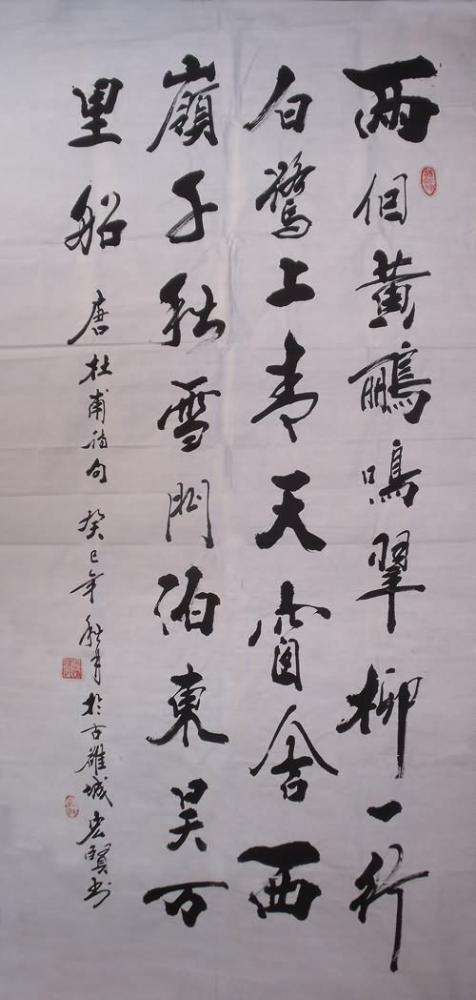 兩個黃鸝鳴翠柳一行
白鷺上青天窗含西
嶺千秋雪門泊東吳万
里船
唐杜甫诗句 癸巳年秋月於古雄城宏賢书